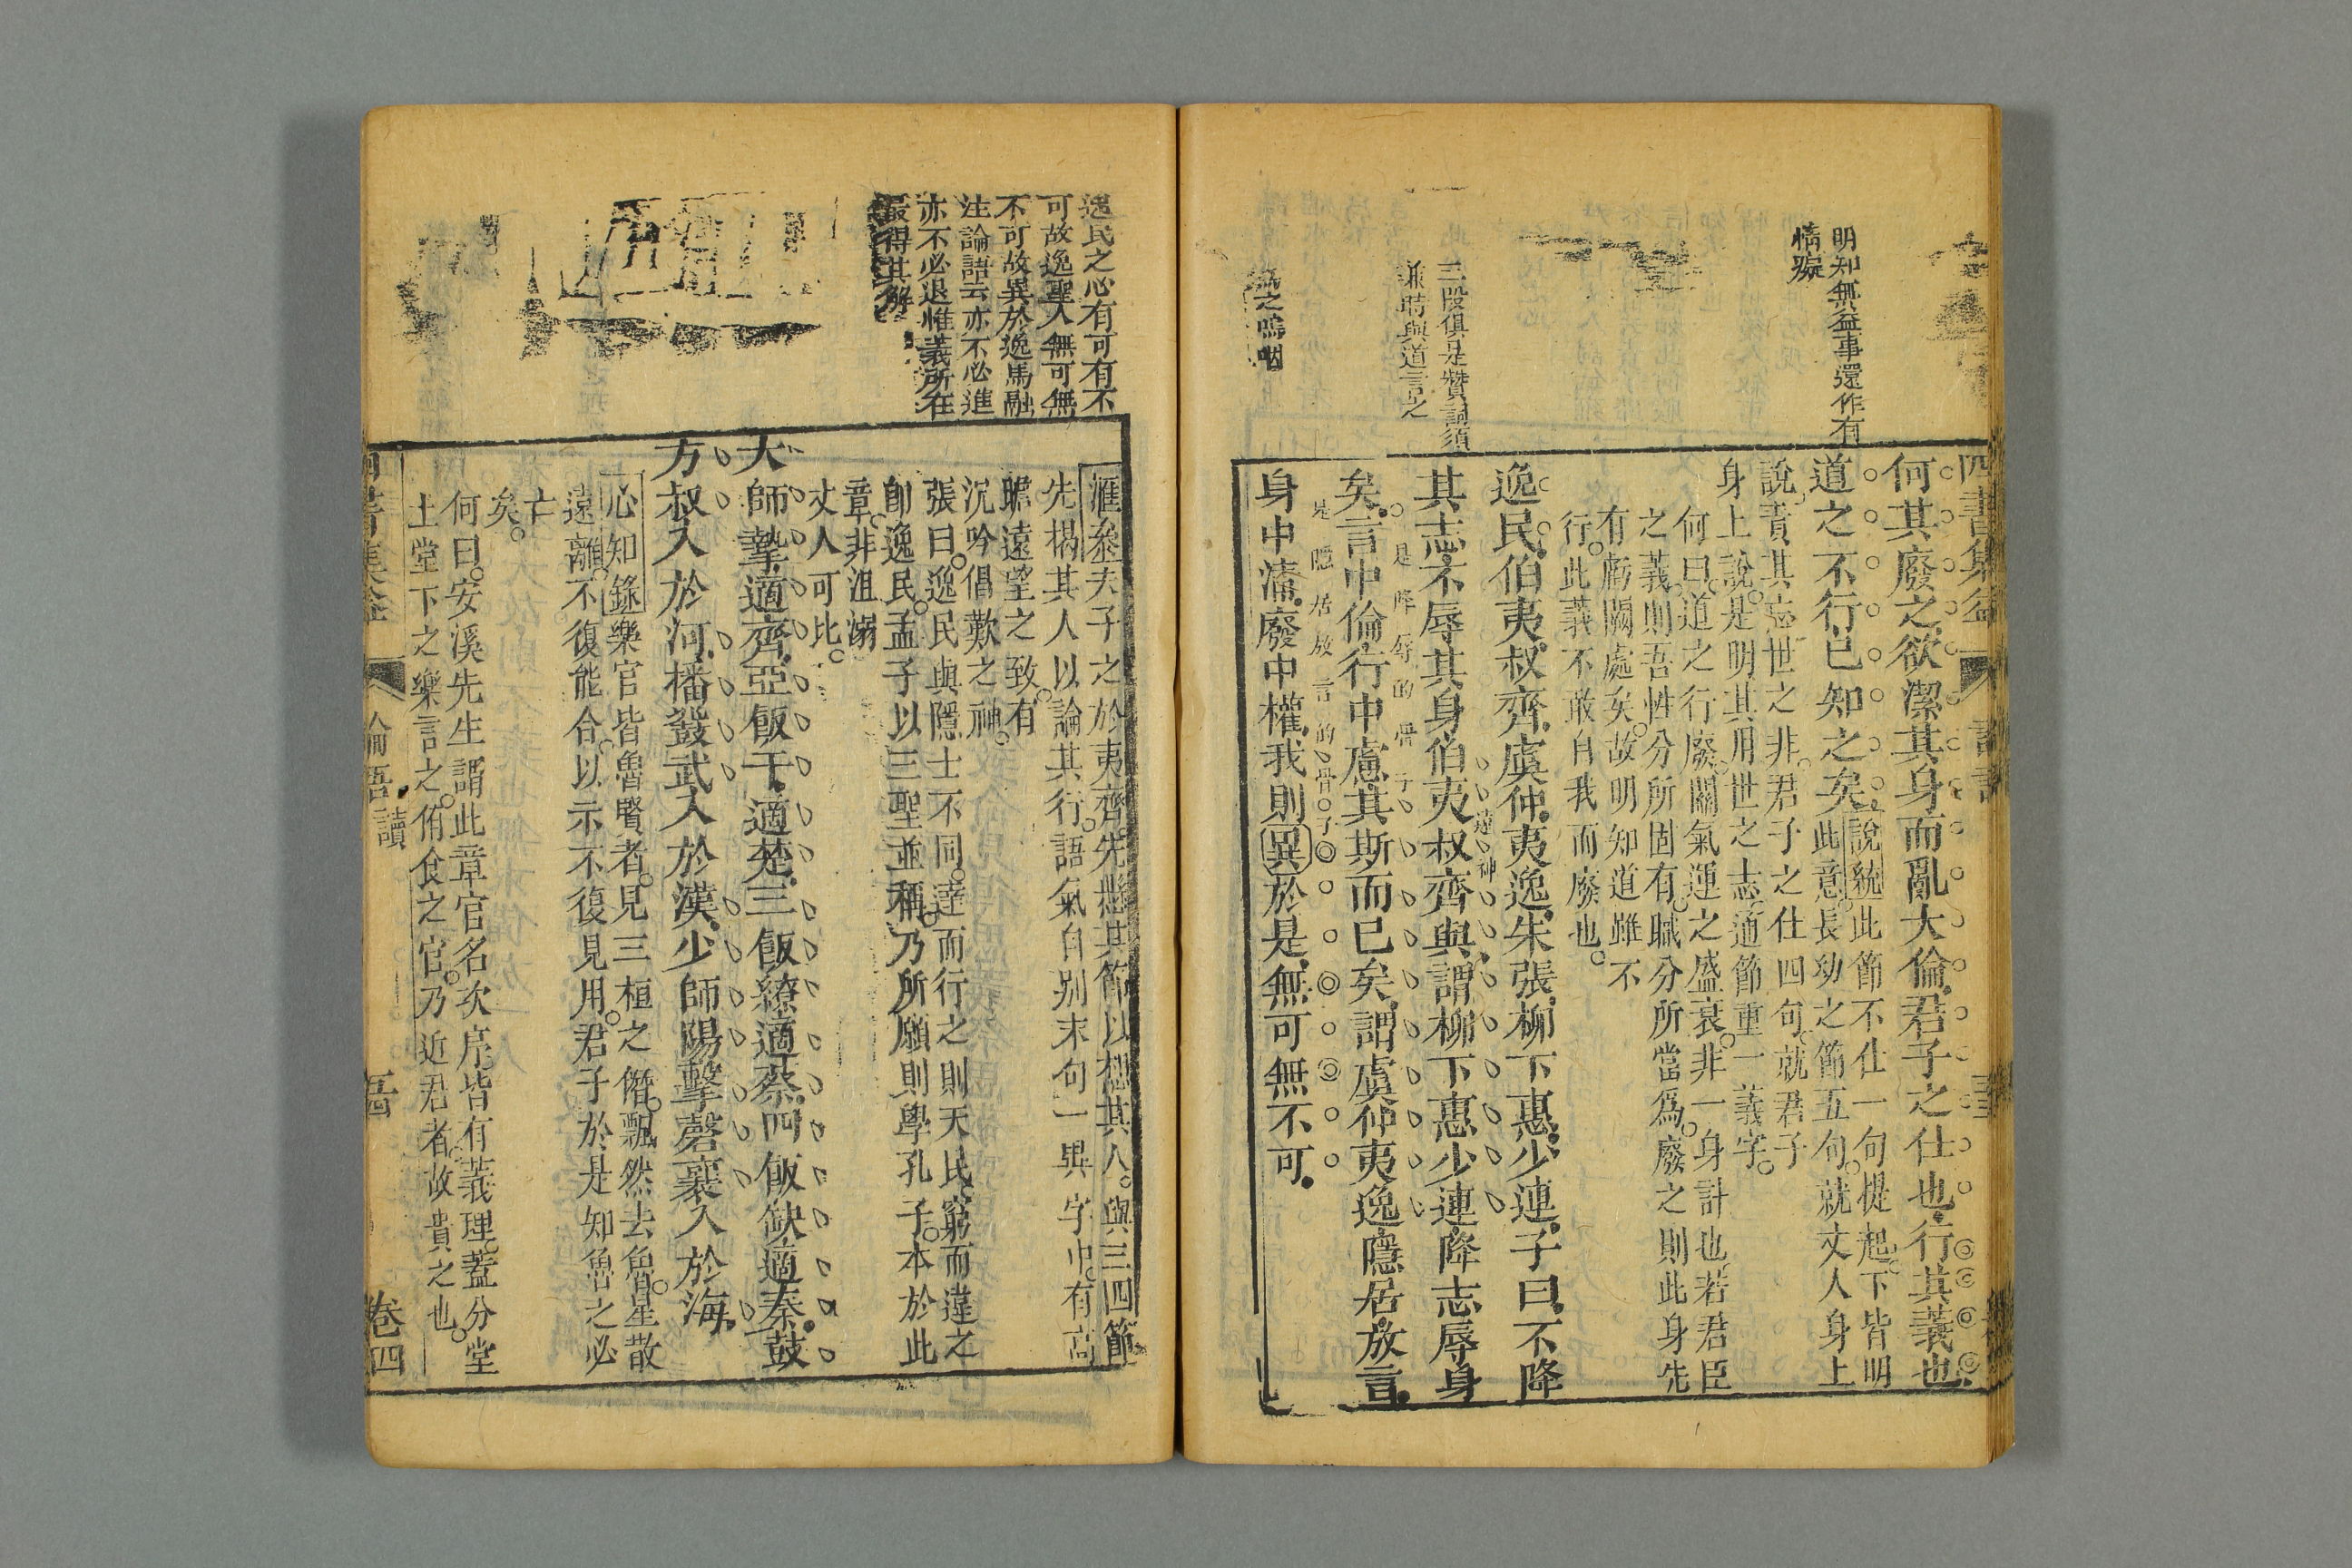 明知無益事還作有
情癡
三段俱是贊詞須
兼時與道言之
之嗚咽
何其廢之欲潔其身而亂大倫君子之仕也行其義也
道之不行已知之矣
說統此節不仕一句提起下皆明
此意長幼之節五句就丈人身上
說責其忘世之非君子之仕四句就君子
身上說是明其用世之志通節重一義字
何曰道之行廢關氣運之盛衰非一身計也若君臣
之義則吾性分所固有職分所當爲廢之則此身先
有虧闕處矣故明知道雖不
行此義不敢自我而廢也
逸民伯夷叔齊虞仲夷逸朱張柳下惠少連子曰不降
其志不辱其身伯夷叔齊與謂柳下惠少連降志辱身
矣言中倫行中慮其斯而已矣謂虞仲夷逸隱居放言
是隱居放言的骨子
身中清廢中權我則異於是無可無不可
逸民之心有可有不
可故逸聖人無可無
不可故異於逸馬融
注論語云亦不必進
亦不必退惟義所在
最得其解
滙叅夫子之於夷齊先
其節以想其人與三四節
先揭其人以論其行語氣自別末句一異字中有高
瞻遠望之致有
沉吟倡歎之神
張曰逸民與隱士不同達而行之則天民窮而違之
卽逸民孟子以三聖並稱乃所願則學孔子本於此
章非沮溺
丈人可比
大師摯適齊亞飯干適楚三飯繚適蔡四飯缺適秦鼓
方叔入於河播鼗武入於漢少師陽擊磬襄入於海
心知錄樂官皆魯賢者見三桓之僭飄然去魯星散
遠離不復能合以示不復見用君子於是知魯之必
亡
矣
何曰安溪先生謂此章官名次序皆有義理蓋分堂
上堂下之樂言之侑食之官乃近君者故貴之也
卷四